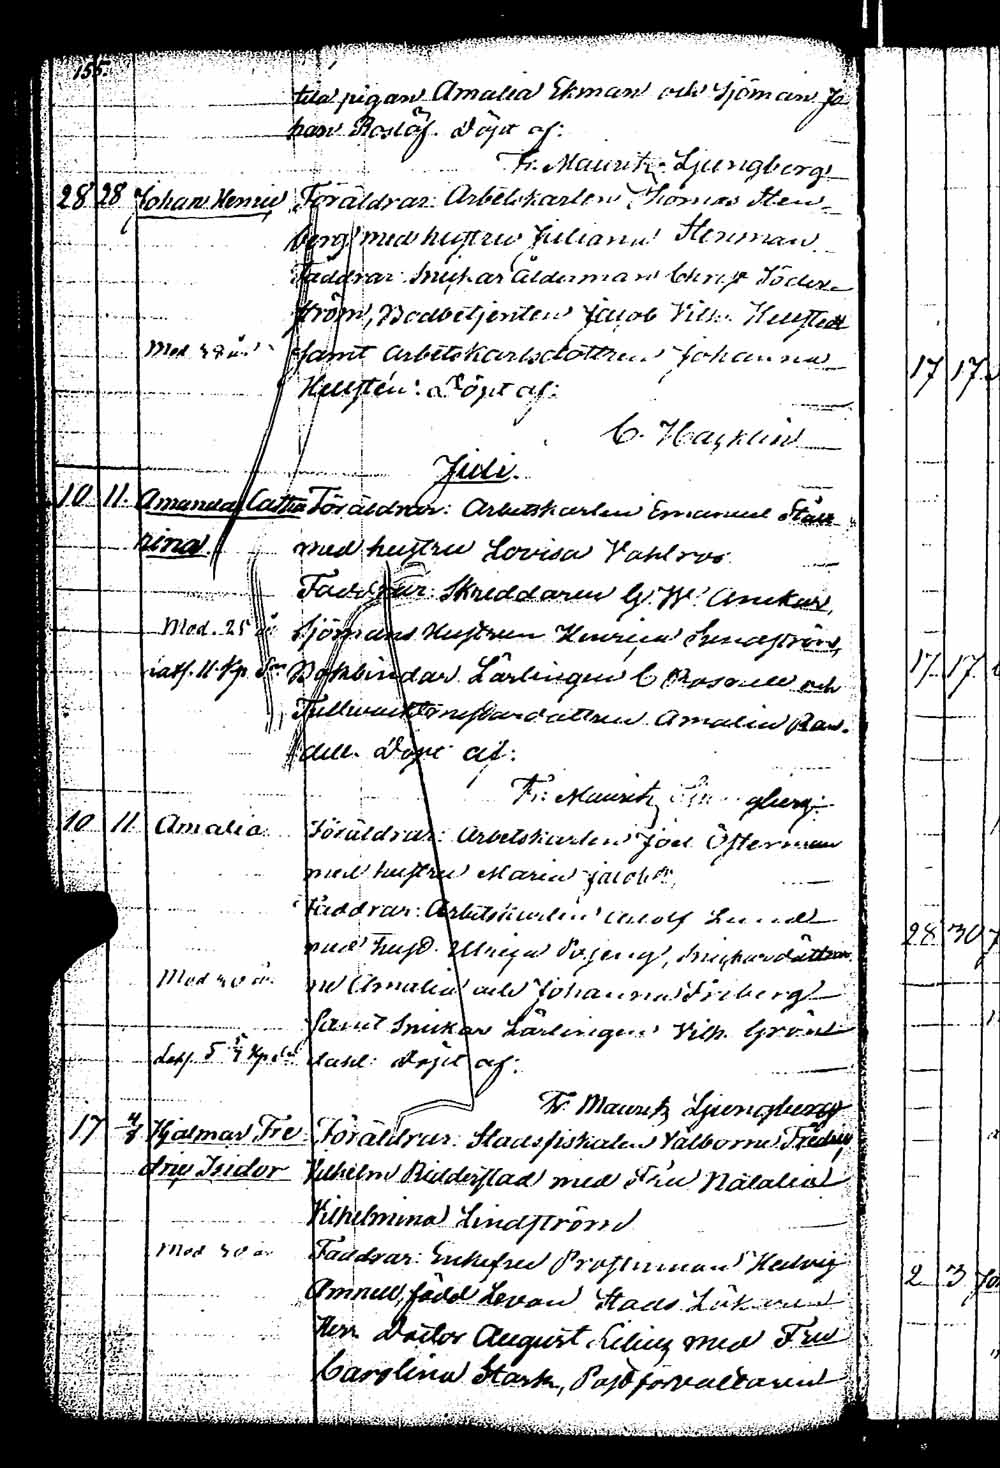 155.
tila pigan Amalia Ekman och Sjöman Jo
han Roslöf. Döpt af:
Fr. Mauritz Ljungberg
28 28 Johan Henric Föräldrar: Arbetskarlen Thomas Sten-
berg med hustru Juliana Stenman
Faddrar: Snickar ålderman Söder-
ström, Bodbetjenten Jacob Vilh. Hellstedt
Mod. år samt arbetskarlsdottren Johanna
Hellstén: Döpt af:
C. Hacklin
Juli.
10 11. Amanda Catha Föräldrar: Arbetskarlen Emanuel
rina med hustru Lovisa Vahlroos
Faddrar: Skreddaren G. W.
Mod. 25 år Sjömans Hustrun Henrica Sundström,
11 Bokbindar Lärlingen C. och
dottren Amalia Ran-
dell. Döpt af:
Fr. Mauritz Ljungberg
10 11. Amalia Föräldrar: Arbetskarlen Joel Österman
med hustru Maria
Faddrar: Arbetskarlen Adolf Lund
med Ulrica Snickardöttrar
Mod 40 år ne Amalia och Johanna Friberg
samt Snickar Lärlingen Vilh. Grön
dahl: Döpt af:
Fr. Mauritz Ljungberg
17 4/8 Hjalmar Fre Föräldrar: Stadsfiskalen Välborne Fredric
dric Isidor Vilhelm Ridderstad med Fru Natalia
Vilhelmina Lindström
Mod 30 år Faddrar: Enkefru Prostinnan Hedvig
född Levon Stads Läkaren
Herr Doctor August Lilius med Fru
Carolina Stark, Postförvaltaren
17 17
17 17
28 30
2 3